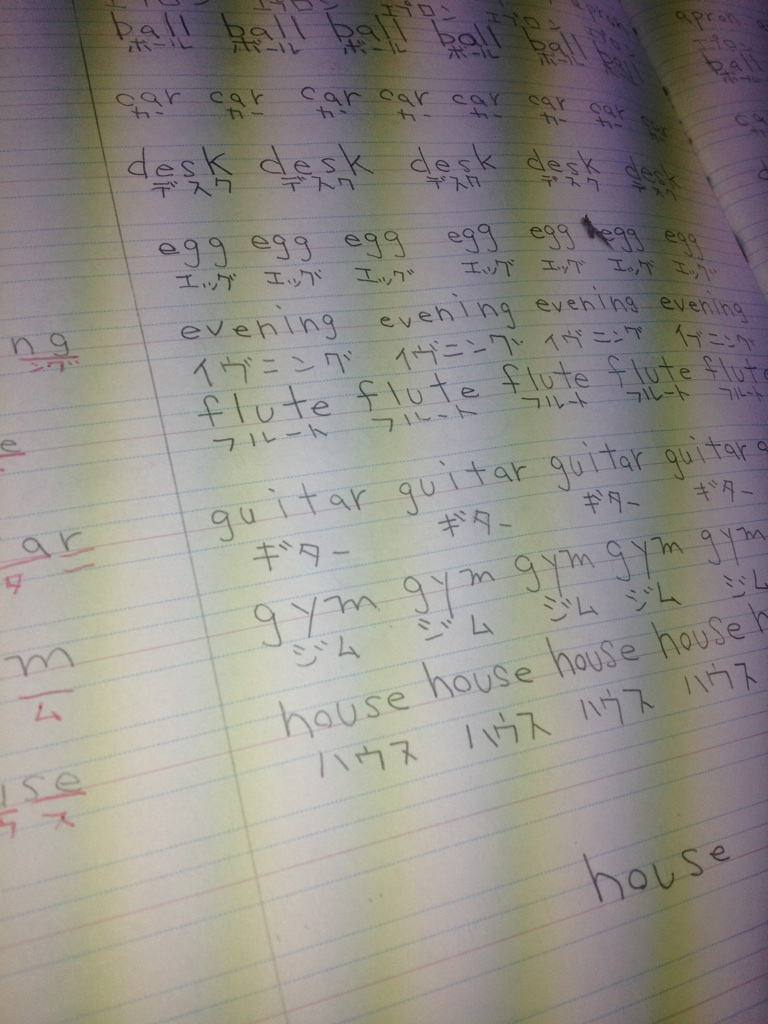 エプロン エプロン
ball ball ball ball ball ball
ボール ボール ボール ボール ボール ボール
car car car car car car car car
カー カー カー カー カー カー カー カー
desk desk desk desk desk
デスク デスク デスク デスク デスク
egg egg egg egg egg egg egg
エッグ エッグ エッグ エッグ エッグ エッグ エッグ
evening evening evening evening
イヴニング イヴニング イヴニング イヴニング
flute flute flute flute flute
フルート フルート フルート フルート フルート
guitar guitar guitar guitar
ギター ギター ギター ギター
gym gym gym gym gym
ジム ジム ジム ジム ジム
house house house house h
ハウス ハウス ハウス ハウス
house
ng
ング
e
ar
タ
m
ム
use
ウス
apron
エプロン
ball
ボール
ca
カ
d